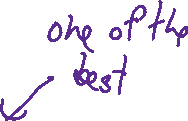 one of the
best